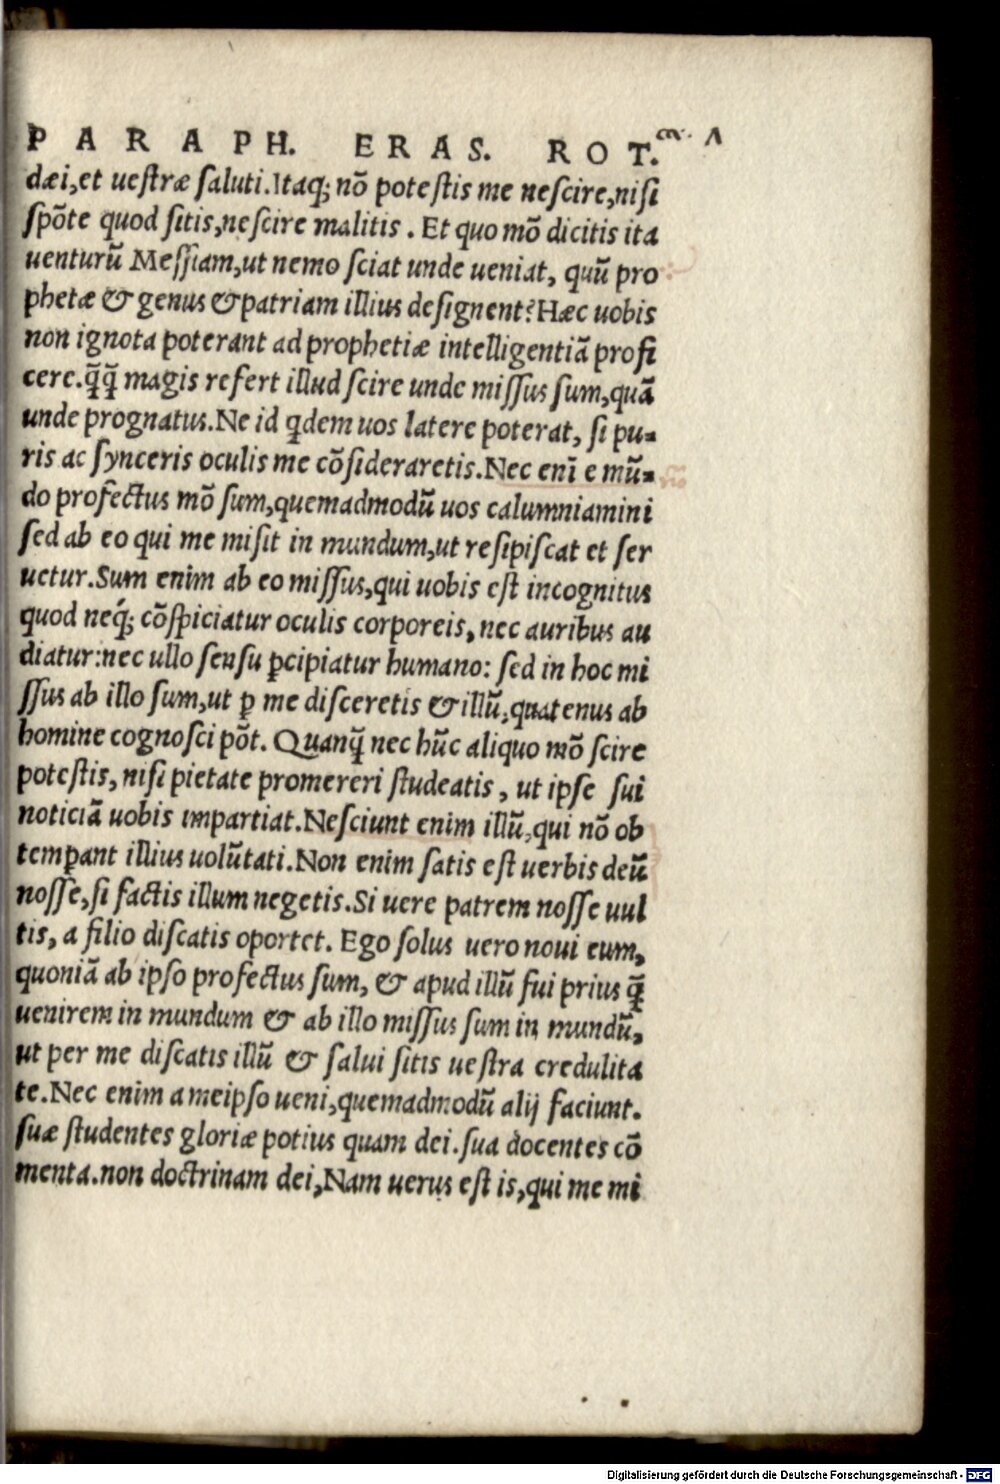 PARAPH. ERAS. ROT.
dæi,et uestræ saluti.Itaq; nõ potestis me nescire,nisi
spõte quod sitis,nescire malitis. Et quo mõ dicitis ita
uenturũ Messiam,ut nemo sciat unde ueniat, quũ pro
phetæ & genus & patriam illius designent?Hæc uobis
non ignota poterant ad prophetiæ intelligentiã profi
cere.q̃q̃ magis refert illud scire unde missus sum,quã
unde prognatus.Ne id qdem uos latere poterat, si pu-
ris ac synceris oculis me cõsideraretis.Nec enĩ e mũ-
do profectus mõ sum,quemadmodũ uos calumniamini
sed ab eo qui me misit in mundum,ut resipiscat et ser
uetur.Sum enim ab eo missus,qui uobis est incognitus
quod neq́; cõspiciatur oculis corporeis, nec auribus au
diatur:nec ullo sensu ꝑcipiatur humano: sed in hoc mi
ssus ab illo sum,ut ꝑ me disceretis & illũ,quatenus ab
homine cognosci põt. Quanq̃ nec hũc aliquo mõ scire
potestis, nisi pietate promereri studeatis, ut ipse sui
noticiã uobis impartiat.Nesciunt enim illũ,qui nõ ob
temꝑant illius uolũtati.Non enim satis est uerbis deũ
nosse,si factis illum negetis.Si uere patrem nosse uul
tis, a filio discatis oportet. Ego solus uero noui eum,
quoniã ab ipso profectus sum, & apud illũ fui prius q̃
uenirem in mundum & ab illo missus sum in mundũ,
ut per me discatis illũ & salui sitis uestra credulita
te.Nec enim a meipso ueni,quemadmodũ alij faciunt.
suæ studentes gloriæ potius quam dei.sua docentes cõ
menta.non doctrinam dei,Nam uerus est is,qui me mi
Digitalisierung gefördert durch die Deutsche Forschungsgemeinschaft - DFG